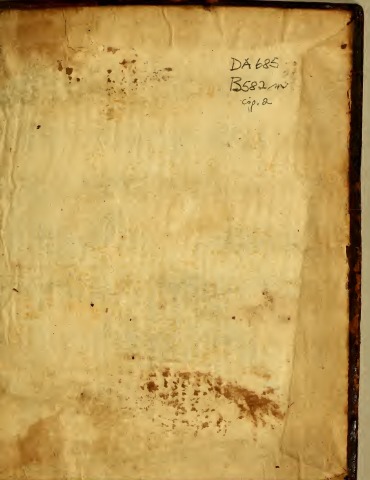 DA 685
B582m
cop. 2